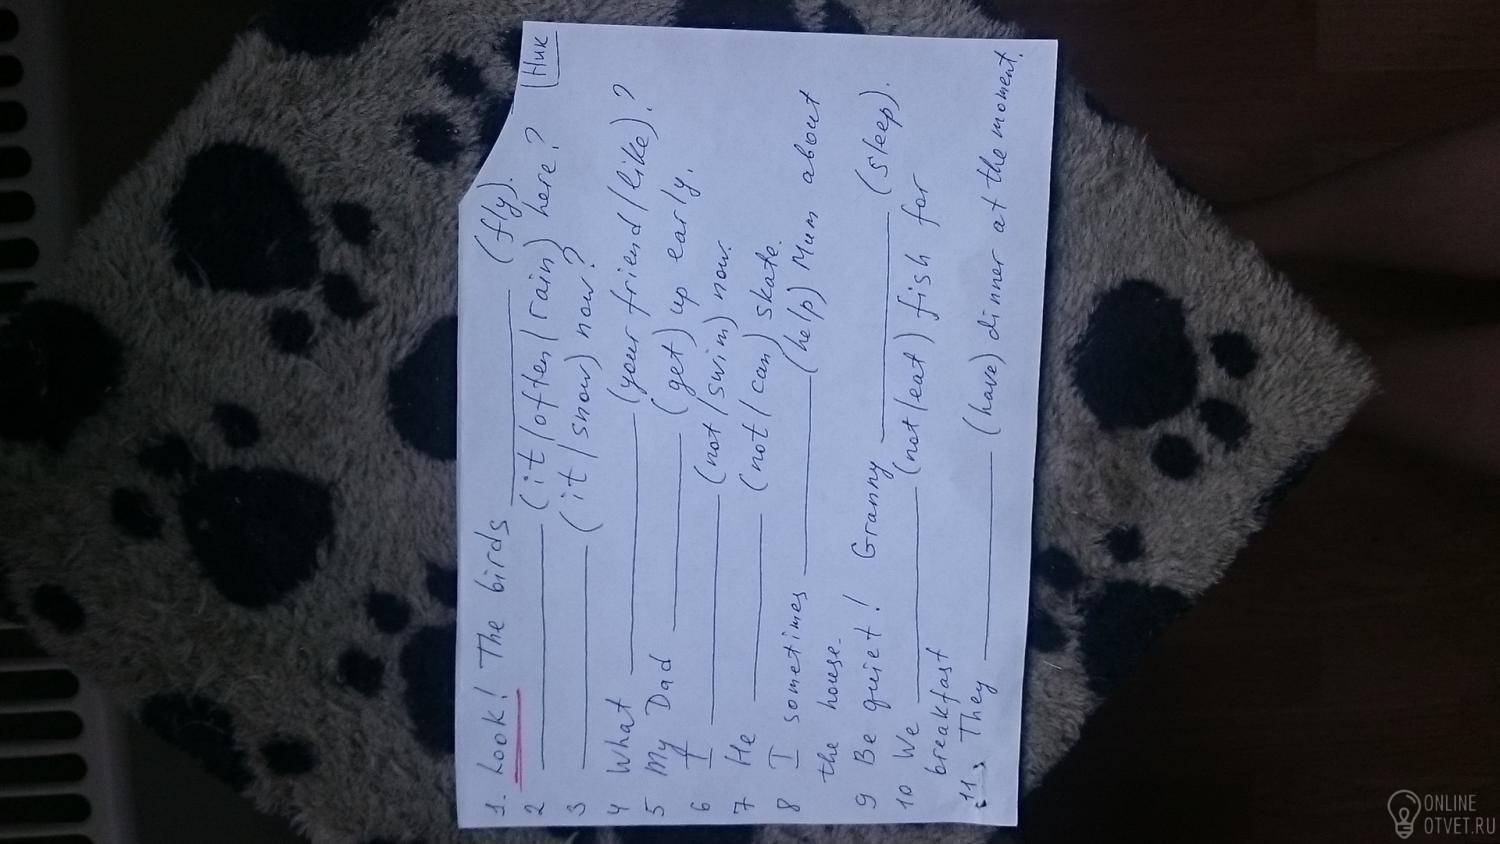 Ник
1. Look! The birds ________ (fly).
2 ________ (it/often/rain) here?
3 ________ (it/snow) now?
4 What ________ (your friend/like)?
5 My Dad ________ (get) up early.
6 I ________ (not/swim) now.
7 He ________ (not/can) skate.
8 I sometimes ________ (help) Mum about
the house.
9 Be quiet! Granny ________ (sleep).
10 We ________ (not/eat) fish for
breakfast
11. They ________ (have) dinner at the moment.
ONLINE
OTVET.RU